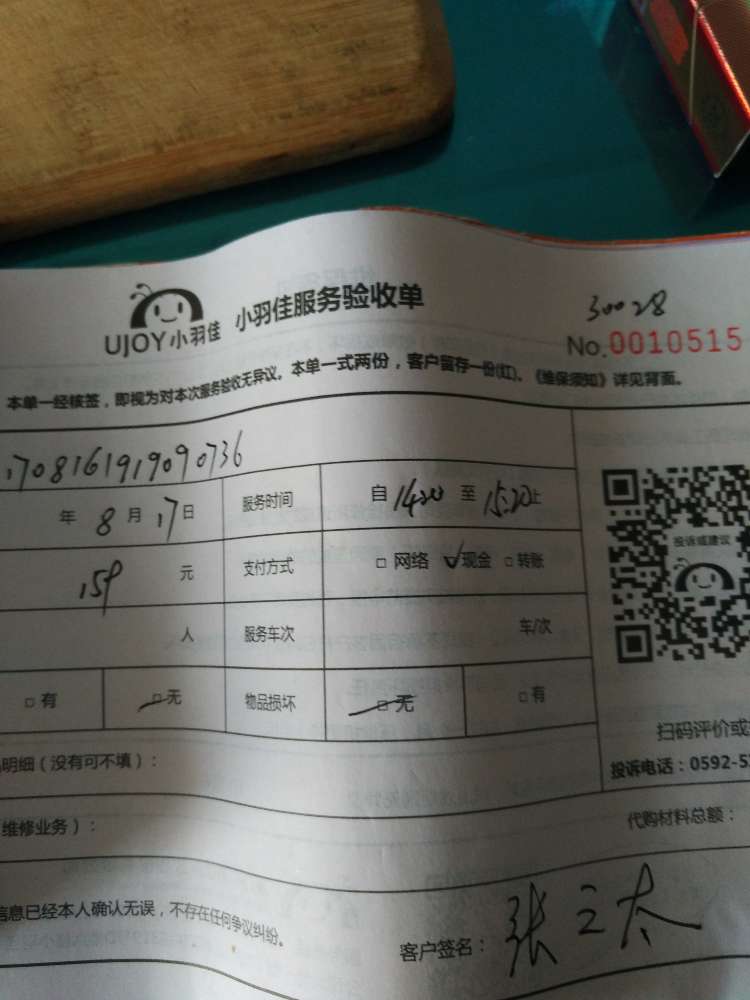 UJOY小羽佳 小羽佳服务验收单
30028
No.0010515
本单一经核签，即视为对本次服务验收无异议。本单一式两份，客户留存一份(红)。《维保须知》详见背面。
170816191909 0736
年 8 月 17 日 服务时间 自 14:20 至 15:20 止
159 元 支付方式 □ 网络 ✓现金 □ 转账
投诉或建议
人 服务车次 车/次
□ 有 □ 无 物品损坏 □ 无 □ 有
扫码评价或
明细（没有可不填）：
投诉电话：0592-5
维修业务）：
代购材料总额：
信息已经本人确认无误，不存在任何争议纠纷。
客户签名：张立太